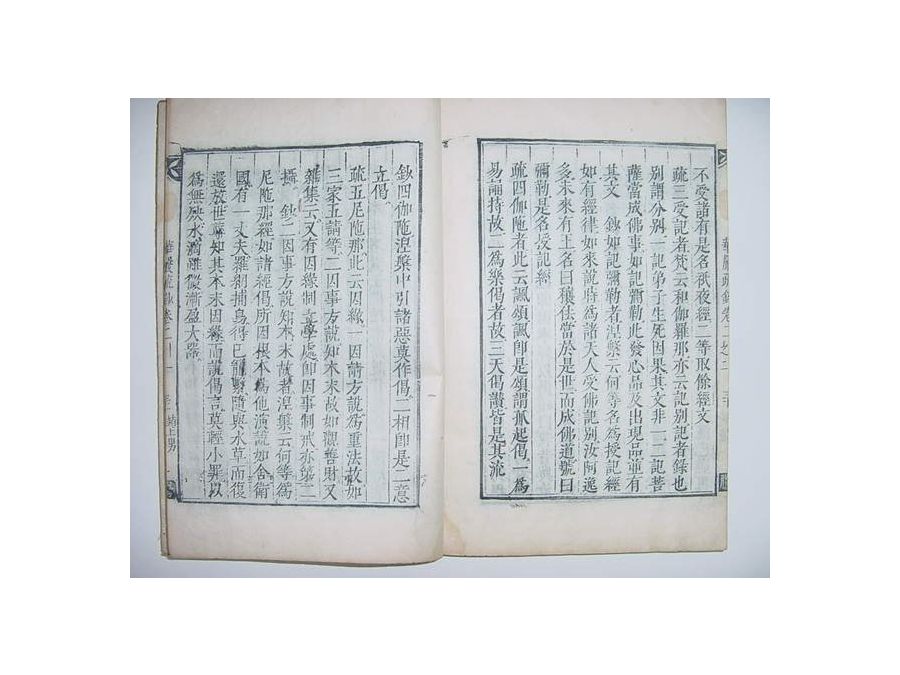 不愛諸有是名祇夜經二等取餘經文
疏三受記者梵云和伽羅那亦云記別記者錄也
別謂分別一記弟子生死因果其文非一二記菩
薩當成佛事如記彌勒此發心品及出現品並有
其文　鈔如記彌勒者涅槃云何等名為授記經
如有經律如來說時為諸大人受佛記別汝阿逸
多未來有王名曰穰佉當於是世而成佛道號曰
彌勒是名授記經
疏四伽陀者此云諷頌諷即是頌謂孤起偈一為
易誦持故二為樂偈者故三天偈讚皆是其流
鈔四伽陀涅槃中引諸惡莫作偈二相即是二意
立偈
疏五尼陀那此云因緣一因請方說為重法故如
三家五請等二因事方說知本末故如觀善財又
雜集云又有因緣制立學處即因事制戒亦第二
攝　鈔二因事方說知本末故者涅槃云何等為
尼陀那經如諸經偈所因根本為他演說如舍衛
國有一丈夫羅網捕鳥得已籠繫隨與水草而復
還放世尊知其本末因緣而說偈言莫輕小罪以
為無殃水渧雖微漸盈大器
華嚴疏鈔卷二